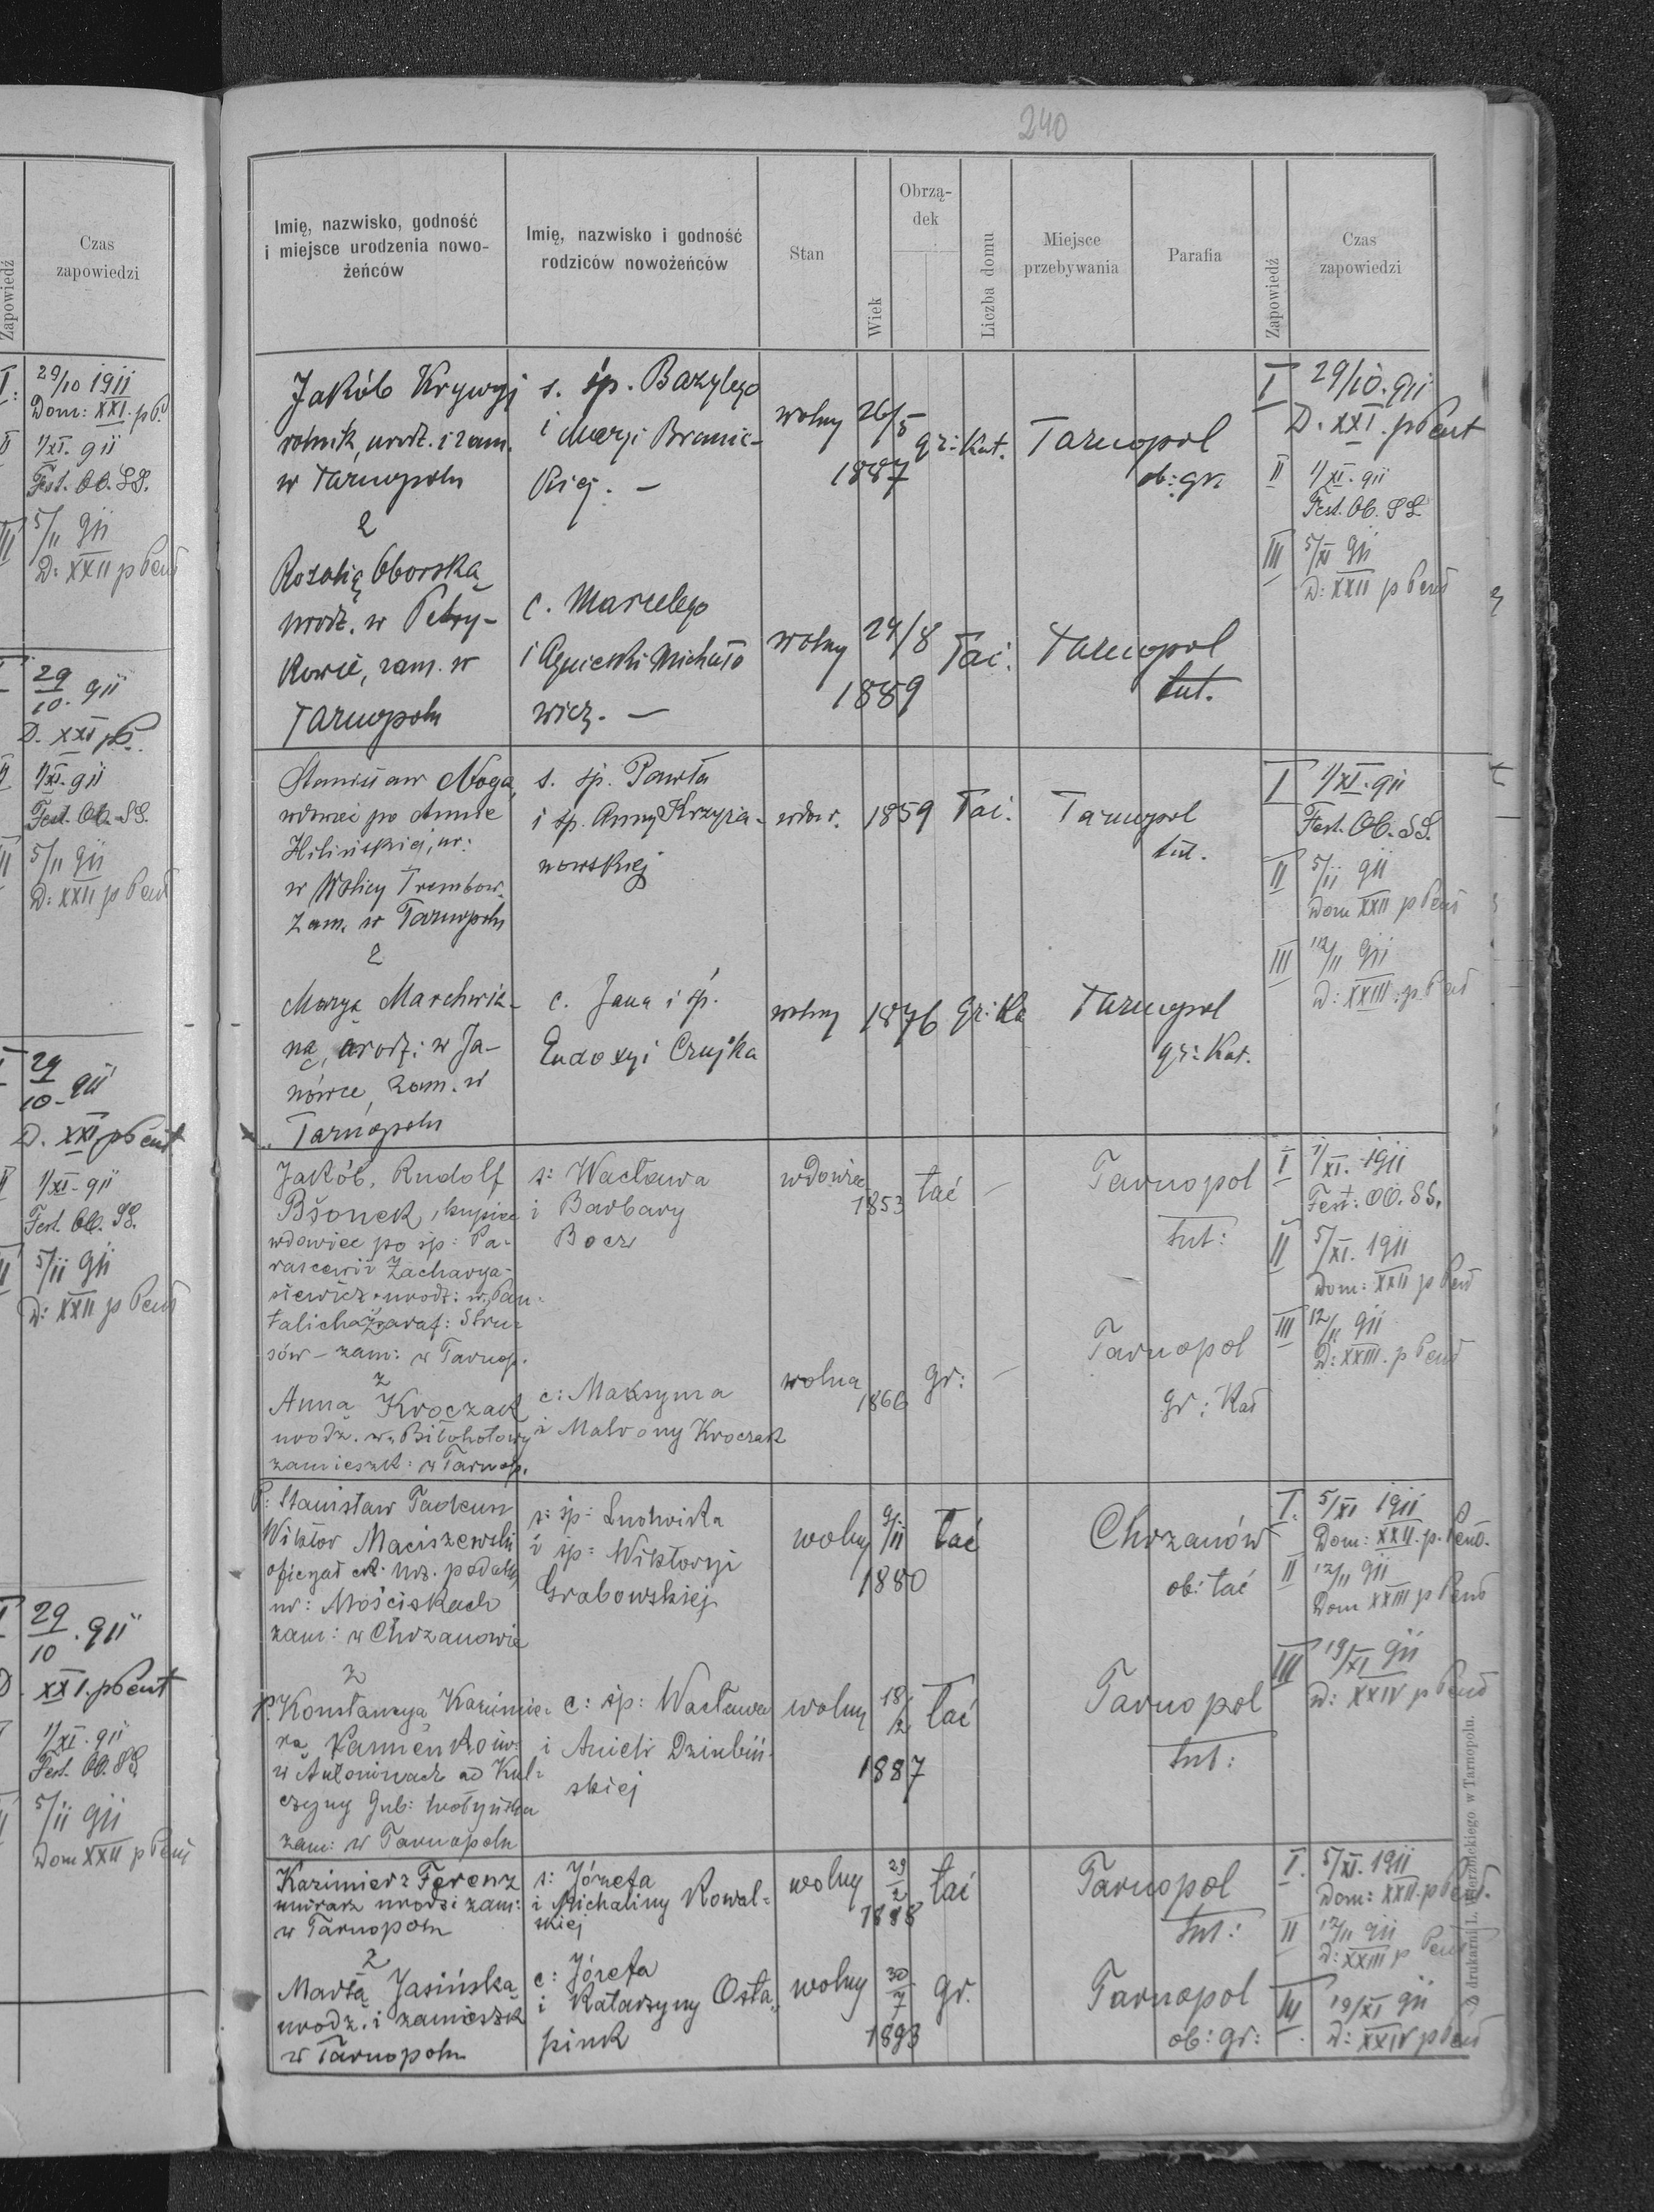 240
Zapowiedź
Czas
zapowiedzi
I: 29/10 1911
Dom: XXI. p P.
II 1/XI. 911
Fest. OO. SS.
III 5/11 911
D: XXII p Pent
29/10. 911
D. XXI p P.
II 1/XI. 911
Fest. OO. SS.
5/11 911
D: XXII p Pent
29/10. 911
D. XXI. p Pent
II 1/XI. 911
Fest. OO. SS.
5/11 911
D: XXII p Pent
29/10. 911
D. XXI. p Pent
1/XI. 911
Fest. OO. SS.
5/11 911
Dom XXII p Pent
Imię, nazwisko, godność
i miejsce urodzenia nowo-
żeńców
Imię, nazwisko i godność
rodziców nowożeńców
Stan
Wiek
Obrzą-
dek
Liczba domu
Miejsce
przebywania
Parafia
Zapowiedź
Czas
zapowiedzi
Jakób Krywyj
rolnik, urodz. i zam.
w Tarnopolu
z
Rozalią Oborską
urodz. w Petry-
kowie, zam. w
Tarnopolu
s. śp. Bazylego
i Maryi Branic-
kiej. —
c. Marcelego
i Agnieszki Michało
wicz. —
wolny 26/5
1887
gr: kat. Tarnopol
ob: gr.
wolny 24/8
1889
łać. Tarnopol
tut.
I 29/10. 911
D. XXI. p Pent
II 1/XI. 911
Fest. OO. SS.
III 5/XI 911
D: XXII p Pent
Stanisław Noga,
wdowiec po Annie
Hilińskiej, ur:
w Wolicy Trembow.
zam. w Tarnopolu
z
Maryą Marchwiń-
ną, urodz: w Ja-
nówce, zam. w
Tarnopolu
s. śp. Pawła
i śp. Anny Krzyża-
nowskiej
c. Jana i śp.
Eudoxyi Czujka
wdow. 1859 łać. Tarnopol
tut.
wolny 1876 gr: ka Tarnopol
gr: kat.
I 1/XI. 911
Fest. OO. SS.
II 5/11 911
Dom XXII p Pent
III 12/11 911
D: XXIII. p Pent
Jakób, Rudolf
Pšonek, kupiec
wdowiec po śp: Pa-
rascewii Zacharya-
siewicz. urodz: w Pan-
talicha paraf: Stru-
sów – zam: w Tarnop.
z
Anną Kroczak
urodz. w Biłohołowy
zamieszk: w Tarnop.
s: Wacława
i Barbary
Bocz
c: Maksyma
i Matrony Kroczak
wdowiec
1853 łać — Tarnopol
tut:
wolna
1866 gr: — Tarnopol
gr: Kat
I 1/XI. 1911
Fest: OO. SS.
II 5/XI. 1911
Dom: XXII p Pent
III 12/11 911
D: XXIII. p Pent
P: Stanisław Tadeusz
Wiktor Maciszewski
oficyał ck. urz. podatk.
ur: Mościskach
zam: w Chrzanowie
z
P. Konstancyą Kazimie-
rą Kamienko ur:
w Antoninach ad Kul-
czyny Gub: wołyńska
zam: w Tarnopolu
s: śp: Ludwika
i śp: Wiktoryi
Grabowskiej
c: śp: Wacława
i Anieli Dziubiń-
skiej
wolny 9/11
1880
łać Chrzanów
ob: łać
wolny 18/12
1887
łać Tarnopol
tut:
I. 5/XI 1911
Dom: XXII. p. Pent.
II 12/11 911
Dom XXIII p Pent
III 19/XI 911
D: XXIV p Pent
Kazimierz Ferenz
murarz urodz i zam:
w Tarnopolu
z
Martą Jasińską
urodz. i zamieszk
w Tarnopolu
s: Józefa
i Michaliny Kowal-
skiej
c: Józefa
i Katarzyny Osta-
piuk
wolny 29/2
1888
łać Tarnopol
tut:
wolny 30/7
1893
gr. Tarnopol
ob: gr:
I. 5/XI. 1911
Dom: XXII. p Pent.
II 12/11 911
D: XXIII p Pent
III 19/XI 911
D: XXIV p Pent
Z drukarni L. Wierzbickiego w Tarnopolu.